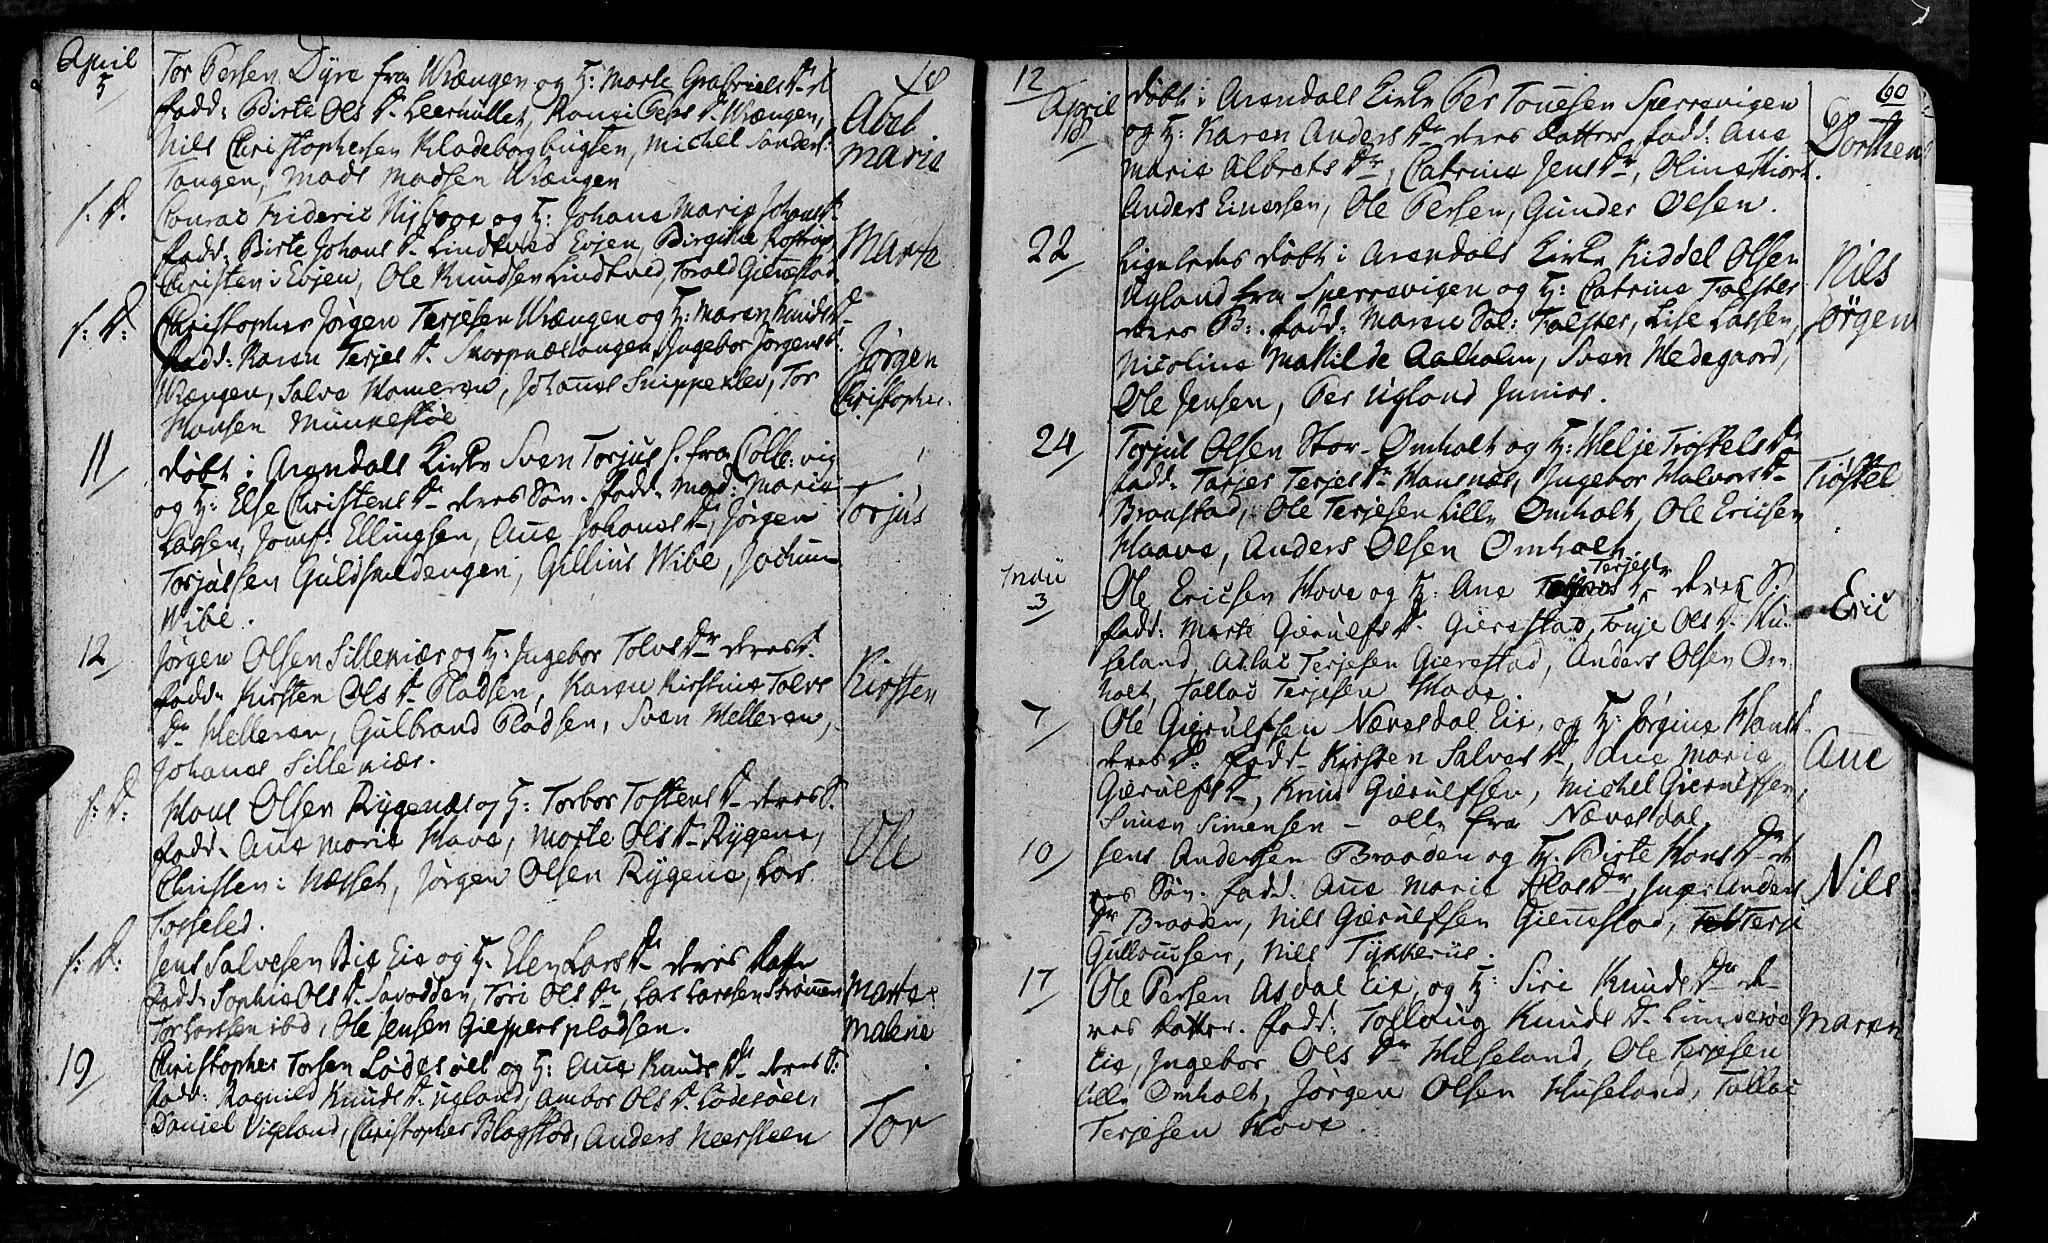 April
5
Tor Persen Dyre fra Wrængen og H: Marte Gabriels D. d
fadd: Birte Ols D. Leermullet, Rongi Pers D. Wrængen,
Nils Christophersen Kladeborgbugten, Michel Sanders.
Tangen, Mads Madsen Wrængen
18
Abel
Marie
s: D.
Conrad Frideric Nyboe og H: Johane Marie Johans D.
fadd: Birte Johans D. Lindtved Evjen, Birgithe Rostrup
Christen i Evjen, Ole Knudsen Lindtved, Torald Gierrestad
Marte
s: D:
Christopher Jørgen Terjesen Wrængen og H: Maren Knuds D.
fadd: Karen Terjes D. Skarpnæstangen, Ingebor Jørgens D.
Wrængen, Salve Homeren, Johannes Snippeklev, Tor
Hansen Munkestøe
Jørgen
Christopher.
11
døbt i Arendals Kirke Sven Torjus S. fra Colle:vig
og H: Else Christens D. deres Søn. fadd: Mad: Marie
Lassen, Jomf: Ellingsen, Ane Johanes D., Jørgen
Torjussen Guldsmedengen, Gillius Wibe, Jochum
Wibe.
Torjus
12
Jørgen Olsen Sillekiær og H: Ingebor Tolvs Dr deres D.
fadd. Kirsten Ols D. Pladsen, Karen Kirstine Tolvs
Dr Melleren, Gulbrand Pladsen, Sven Melleren,
Johanes Sillekiær.
Kirsten
s: D:
Hans Olsen Rygenæs og H: Torbor Tostens D. deres S.
fadd. Ane Marie Have, Marte Ols D. Rygene,
Christen i Næsset, Jørgen Olsen Rygene, Lars
Tosseled.
Ole
s: D:
Jens Salvesen Bie Eie og H. Elen Lars D. deres Datter
fadd. Sophie Ols D. Savodden, Tori Ols Dr, Lars Larssen Strømmen
Tor Larssen ibd, Ole Jensen Gieppers pladsen.
Marte
Malene
19
Christopher Torsen Lødesøel og H: Ane Knuds D. deres S:
fadd: Ragnild Knuds D. Ugland, Ambor Ols D. Lødesøel,
Daniel Vigeland, Christopher Blagstad, Anders Neersteen
Tor
12
April
døbt i Arendals Kirke Per Touesen Sperrevigen
og H: Karen Anders Dr deres Datter, fadd: Ane
Marie Albrets Dr, Catrine Jens Dr, Oline Hiort.
Anders Einersen, Ole Persen, Gunder Olsen.
60
Dorthea
22
Ligeledes døbt i Arendals Kirke Kiddel Olsen
Ugland fra Sperrevigen og H: Catrine Falster
deres B:. fadd: Maren Sal: Falster, Lise Lassen,
Nicoline Mathilde Aalholm, Sven Hedegaard,
Ole Jensen, Per Ugland Junior.
Nils
Jørgen
24
Torjus Olsen Stor-Omholt og H: Helje Trøstels D.
fadd: Tarjer Terjes Dr Hansnæs, Ingebor Halvors D.
Braastad, Ole Terjesen Lille Omholt, Ole Ericsen
Haave, Anders Olsen Omholt
Trøstel
Maii
3
Ole Ericsen Hove og H: Ane Terjes Dr deres S.
fadd: Marte Gierulfs D. Gierestad, Tonje Ols D. Hu-
seland, Aslac Terjesen Gierestad, Anders Olsen Om-
holt, Tallac Terjesen Have.
Eric
7
Ole Gierulfsen Næresdal Eie, og H: Jørgine Hans D.
deres D: fadd. Kirsten Salves D., Ane Marie
Gierulfs D., Knud Gierulfsen, Michel Gierulfsen,
Simen Simensen - alle fra Næresdal.
Ane
10
Jens Andersen Braaden og H: Birte Hans Dr de
res Søn. fadd: Ane Marie Olas Dr, Inger Anders
Dr Braaden, Nils Gierulfsen Gierrestad, Terje
Gulloussen, Nils Tykkerue.
Nils
17
Ole Persen Asdal Eie, og H: Siri Knuds Dr de-
res Datter. fadd: Tolloug Knuds D. Lundevie
Eie, Ingebor Ols Dr Huseland, Ole Terjesen
Lille Omholt, Jørgen Olsen Huseland, Tallac
Terjesen Have.
Maren